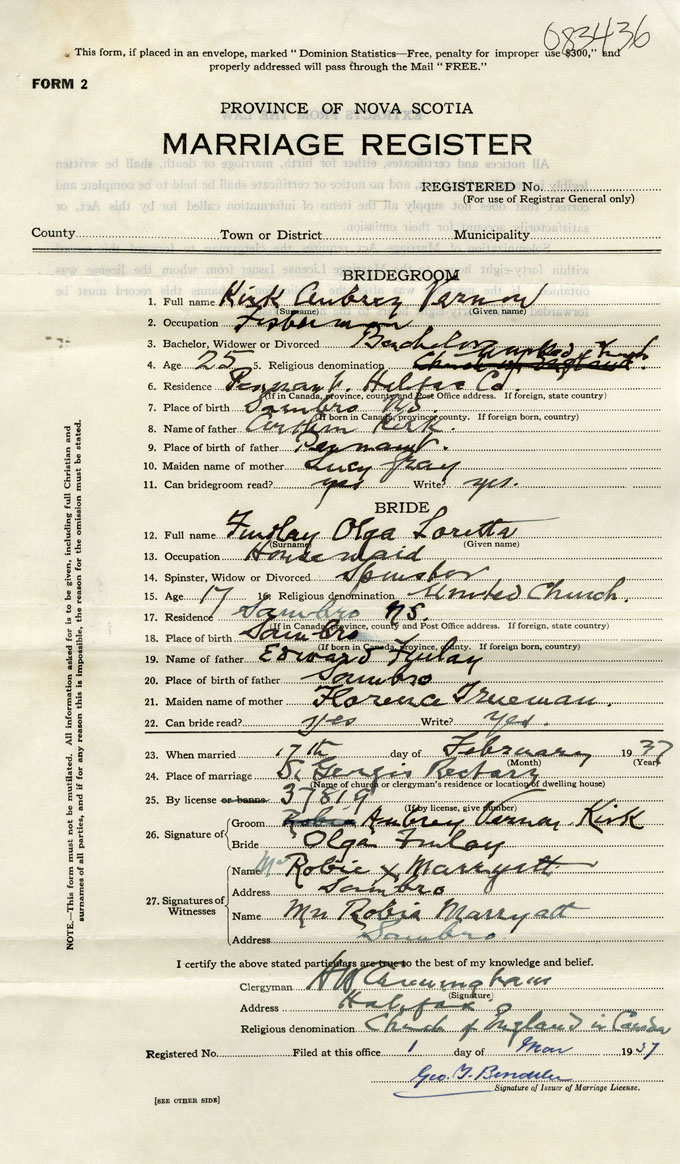 083436
This form, if placed in an envelope, marked "Dominion Statistics—Free, penalty for improper use $300," and
properly addressed will pass through the Mail "FREE."
FORM 2
PROVINCE OF NOVA SCOTIA
MARRIAGE REGISTER
REGISTERED No.
(For use of Registrar General only)
County Town or District Municipality
BRIDEGROOM
1. Full name Kirk Aubrey Vernon
(Surname) (Given name)
2. Occupation Fisherman
3. Bachelor, Widower or Divorced Bachelor
United Church
4. Age 25 5. Religious denomination Church of England
6. Residence Pennant. Halifax Co.
(If in Canada, province, county and Post Office address. If foreign, state country)
7. Place of birth Sambro NS.
(If born in Canada, province, county. If foreign born, country)
8. Name of father Kirk.
9. Place of birth of father Pennant.
10. Maiden name of mother Lucy Gray
11. Can bridegroom read? yes Write? yes.
BRIDE
12. Full name Findlay Olga Loretta
(Surname) (Given name)
13. Occupation Housemaid
14. Spinster, Widow or Divorced Spinster
15. Age 17 16. Religious denomination United Church.
17. Residence Sambro NS.
(If in Canada, province, county and Post Office address. If foreign, state country)
18. Place of birth Sambro
(If born in Canada, province, county. If foreign born, country)
19. Name of father Edward Finlay
20. Place of birth of father Sambro
21. Maiden name of mother Florence Trueman.
22. Can bride read? yes Write? Yes.
23. When married 17th day of February 1937
(Month) (Year)
24. Place of marriage St Georges Rectory
(Name of church or clergyman's residence or location of dwelling house)
25. By license or banns 37819
(If by license, give number)
26. Signature of
Groom Robie Aubrey Vernon Kirk
Bride Olga Finlay
27. Signatures of Witnesses
Name Mr Robie x Marryatt
Address Sambro
Name Mrs Robie Marryatt
Address Sambro
I certify the above stated particulars are true to the best of my knowledge and belief.
Clergyman H W Cunningham
(Signature)
Address Halifax
Religious denomination Church of England in Canada
Registered No. Filed at this office 1 day of Mar 1937
Geo. T.
Signature of Issuer of Marriage License.
[SEE OTHER SIDE]
NOTE.—This form must not be mutilated. All information asked for is to be given, including full Christian and
surnames of all parties, and if for any reason this is impossible, the reason for the omission must be stated.